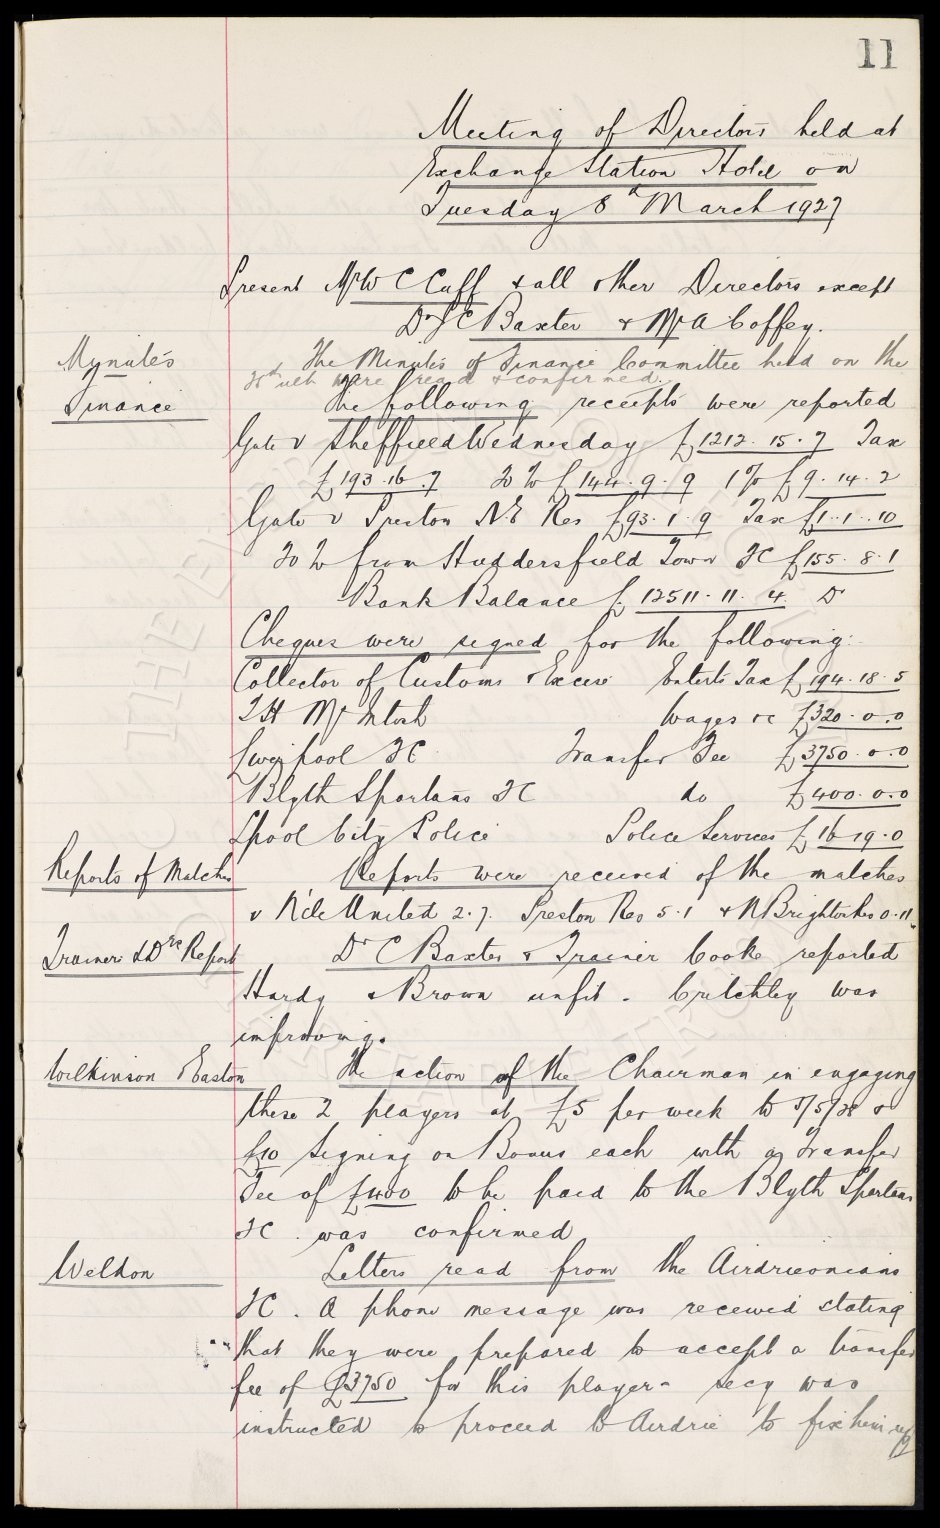 11
Meeting of Directors held at
Exchange Station Hotel on
Tuesday 8th March 1927
Present Mr W C Cuff & all other Directors except
Dr J C Baxter & Mr A Coffey.
Mynutes The Minutes of Finance Committee held on the
ult were read & confirmed.
Finance The following receipts were reported
Gate v Sheffield Wednesday £1212.15.7 Tax
£193.16.7 20% £144.9.9 1% £9.14.2
Gate v Preston N.E Res £93.1.9 Tax £1.1.10
20% from Huddersfield Town FC £155.8.1
Bank Balance £12511.11.4 Dr
Cheques were signed for the following:
Collector of Customs & Excise Enterts Tax £194.18.5
T H McIntosh Wages &c £320.0.0
Liverpool FC Transfer Fee £3750.0.0
Blyth Spartans FC do £400.0.0
Lpool City Police Police Services £16.19.0
Reports of Matches Reports were received of the matches
v N'cle United 2.7. Preston Res 5.1 & N Brighton Res 0.11.
Trainers & Drs Report Dr C Baxter & Trainer Cooke reported
Hardy & Brown unfit. Critchley was
improving.
Wilkinson Easton The action of the Chairman in engaging
these 2 players at £5 per week to 5/5/28 &
£10 Signing on Bonus each with a Transfer
Fee of £400 to be paid to the Blyth Spartans
FC. was confirmed
Weldon Letters read from the Airdrieonians
FC. A phone message was received stating
that they were prepared to accept a transfer
fee of £3750 for this player - Secy was
instructed to proceed to Airdrie to fix him up